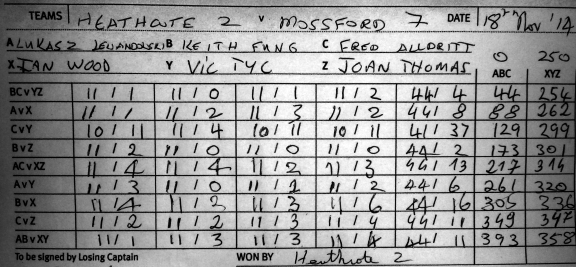 TEAMS HEATHCOTE 2 V MOSSFORD 7 DATE 18TH Nov '14
A LUKASZ LEWANDOWSKI B KEITH FUNG C FRED ALLDRITT 0 250
X IAN WOOD Y VIC TYC Z JOAN THOMAS ABC XYZ
BCvYZ 11/1 11/0 11/1 11/2 44/4 44 254
AvX 11/1 11/2 11/3 11/2 44/8 88 262
CvY 10/11 11/4 10/11 10/11 41/37 129 299
BvZ 11/2 11/0 11/0 11/0 44/2 173 301
ACvXZ 11/4 11/4 11/2 11/3 44/13 217 314
AvY 11/3 11/0 11/1 11/2 44/6 261 320
BvX 11/4 11/3 11/3 11/6 44/16 305 336
CvZ 11/2 11/2 11/3 11/4 44/11 349 347
ABvXY 11/1 11/3 11/3 11/4 44/11 393 358
To be signed by Losing Captain WON BY Heathcote 2